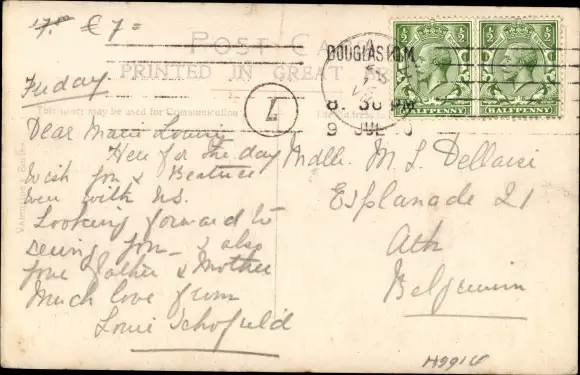 17.— € 7=
POST CARD
PRINTED IN GREAT
DOUGLAS I.O.M.
8. 30 PM
9 JUL
HALFPENNY HALFPENNY
Friday
This space may be used for Communication
The Address
Dear Marie Louise
Here for the day
Wish you & Beatrice
were with us.
Looking forward to
seeing you – & also
your Father & Mother
Much love from
Louie Schofield
Mdlle. M L
Esplanade 21
Ath
Belgium